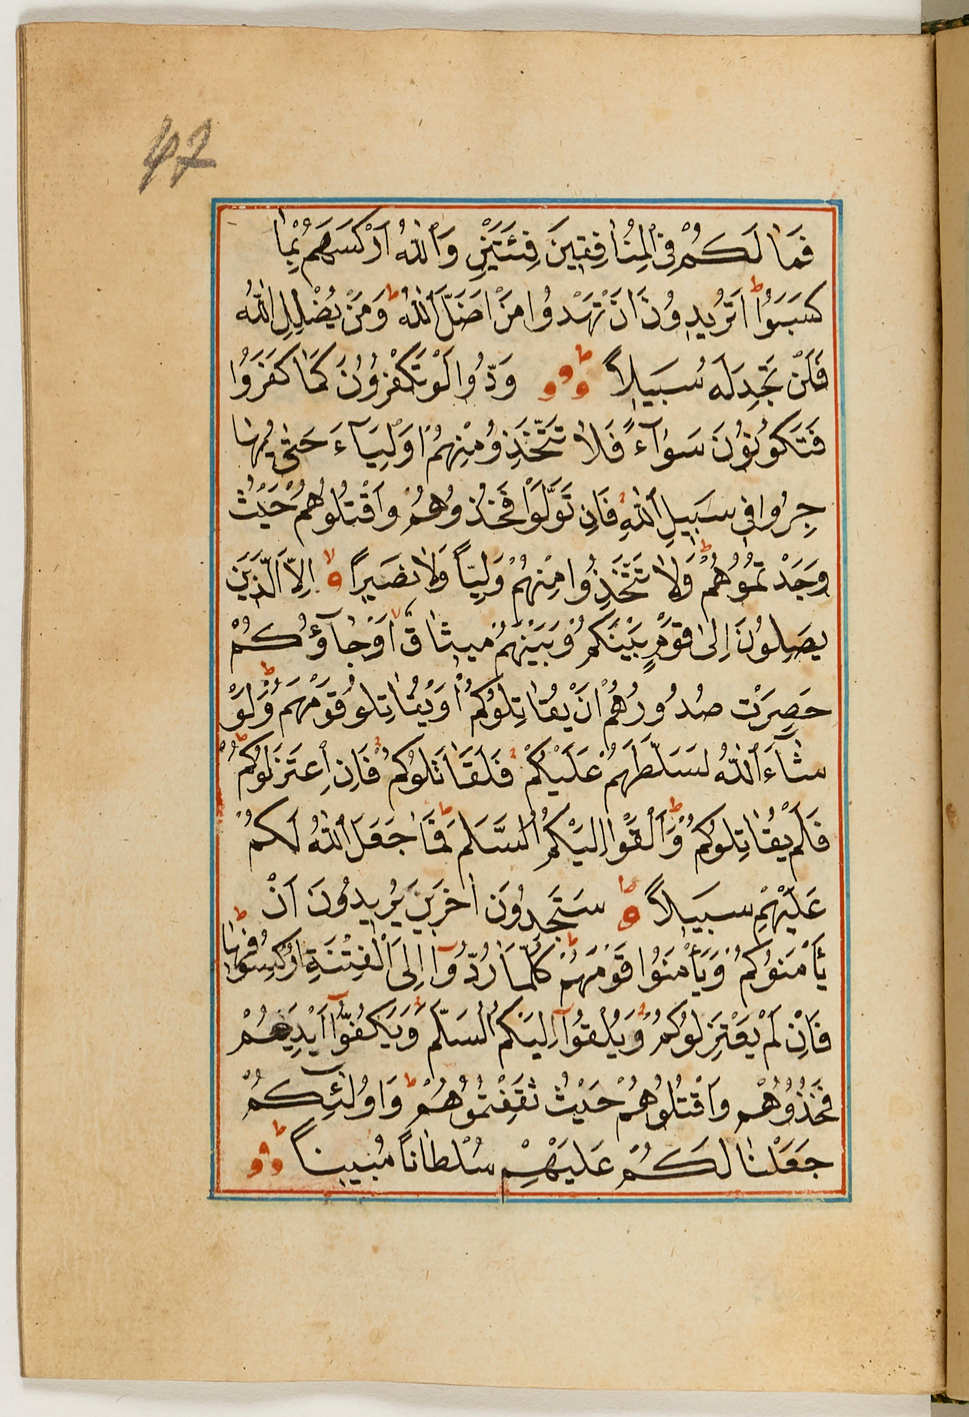 47
فَمَا لَكُمْ فِي الْمُنَافِقِينَ فِئَتَيْنِ وَاللّٰهُ اَرْكَسَهُمْ بِمَا
كَسَبُوا ط اَتُرِيدُونَ اَنْ تَهْدُوا مَنْ اَضَلَّ اللّٰهُ ط وَمَنْ يُضْلِلِ اللّٰهُ
فَلَنْ تَجِدَ لَهُ سَبِيلاً وَدُّوا لَوْ تَكْفُرُونَ كَمَا كَفَرُوا
فَتَكُونُونَ سَوَآءً فَلَا تَتَّخِذُو مِنْهُمْ اَوْلِيَآءَ حَتّٰى يُهَا
جِرُوا فِي سَبِيلِ اللّٰهِ فَاِنْ تَوَلَّوْا فَخُذُوهُمْ وَاقْتُلُوهُمْ حَيْثُ
وَجَدْتُمُوهُمْ ط وَلَا تَتَّخِذُوا مِنْهُمْ وَلِيًّا وَلَا نَصِيرًا لا اِلَّا الَّذِينَ
يَصِلُونَ اِلٰى قَوْمٍ بَيْنَكُمْ وَبَيْنَهُمْ مِيثَاقٌ اَوْ جَاؤُكُمْ
حَصِرَتْ صُدُورُهُمْ اَنْ يُقَاتِلُوكُمْ اَوْ يُقَاتِلُو قَوْمَهُمْ ط وَلَوْ
شَآءَ اللّٰهُ لَسَلَّطَهُمْ عَلَيْكُمْ فَلَقَاتَلُوكُمْ فَاِنِ اعْتَزَلُوكُمْ
فَلَمْ يُقَاتِلُوكُمْ وَاَلْقَوْا اِلَيْكُمُ السَّلَمَ فَمَا جَعَلَ اللّٰهُ لَكُمْ
عَلَيْهِمْ سَبِيلاً ط سَتَجِدُونَ اٰخَرِينَ يُرِيدُونَ اَنْ
يَأْمَنُوكُمْ وَيَأْمَنُوا قَوْمَهُمْ ط كُلَّمَا رُدُّوا اِلَى الْفِتْنَةِ اُرْكِسُوا فِيهَا ط
فَاِنْ لَمْ يَعْتَزِلُوكُمْ وَيُلْقُوا اِلَيْكُمُ السَّلَمَ وَيَكُفُّوا اَيْدِيَهُمْ
فَخُذُوهُمْ وَاقْتُلُوهُمْ حَيْثُ ثَقِفْتُمُوهُمْ ط وَاُولٰئِكُمْ
جَعَلْنَا لَكُمْ عَلَيْهِمْ سُلْطَانًا مُبِينًا